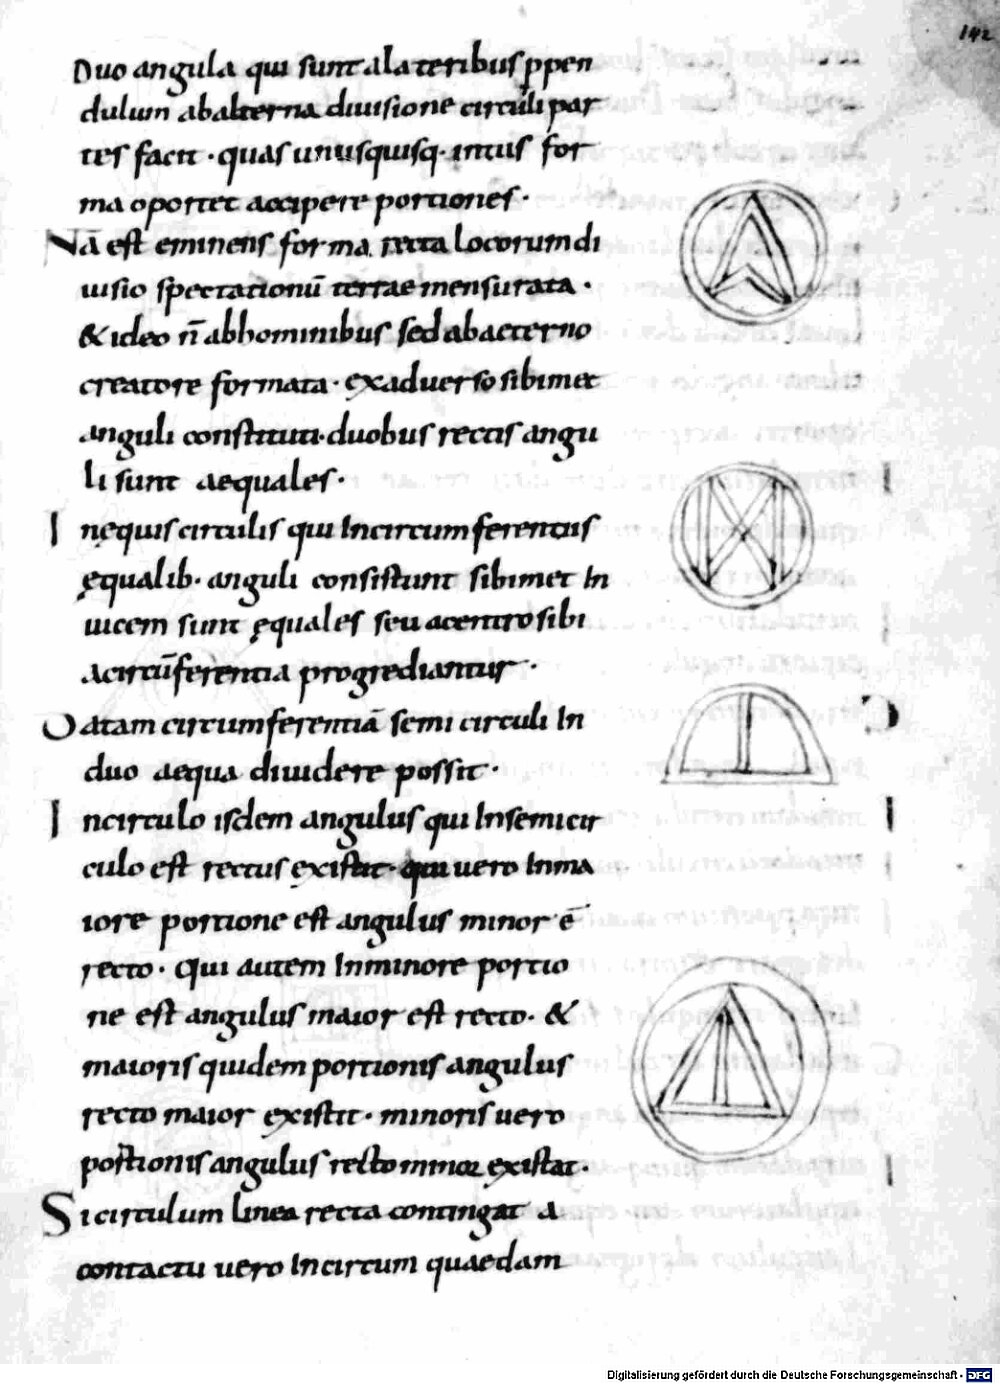 142
Duo angula qui sunt alateribus ppen
dulum abalterna diuisione circuli par
tes facit · quas unusquisq· intus for
ma oportet accipere portiones ·
Nā est eminens forma recta locorum di
uisio spectationū terrae mensurata ·
& ideo n̄ abhominibus sed abaeterno
creatore formata · exaduerso sibimet
anguli constituti· duobus rectis angu
li sunt aequales ·
I nęquis circulis qui Incircumferentiis
ęqualib· anguli consistunt sibimet In
uicem sunt ęquales seu acentro sibi
acircūferentia progrediantur ·
Datam circumferentiā semi circuli In
duo aequa diuidere possit ·
I ncirculo isdem angulus qui Insemicir
culo est rectus existit · qui uero Inma
iore portione est angulus minor ē
recto · qui autem Inminore portio
ne est angulus maior est recto · &
maioris quidem portionis angulus
recto maior existit · minoris uero
portionis angulus recto minor existat ·
Si circulum linea recta contingat a
contactu uero Incircum quaedam
Digitalisierung gefördert durch die Deutsche Forschungsgemeinschaft - DFG